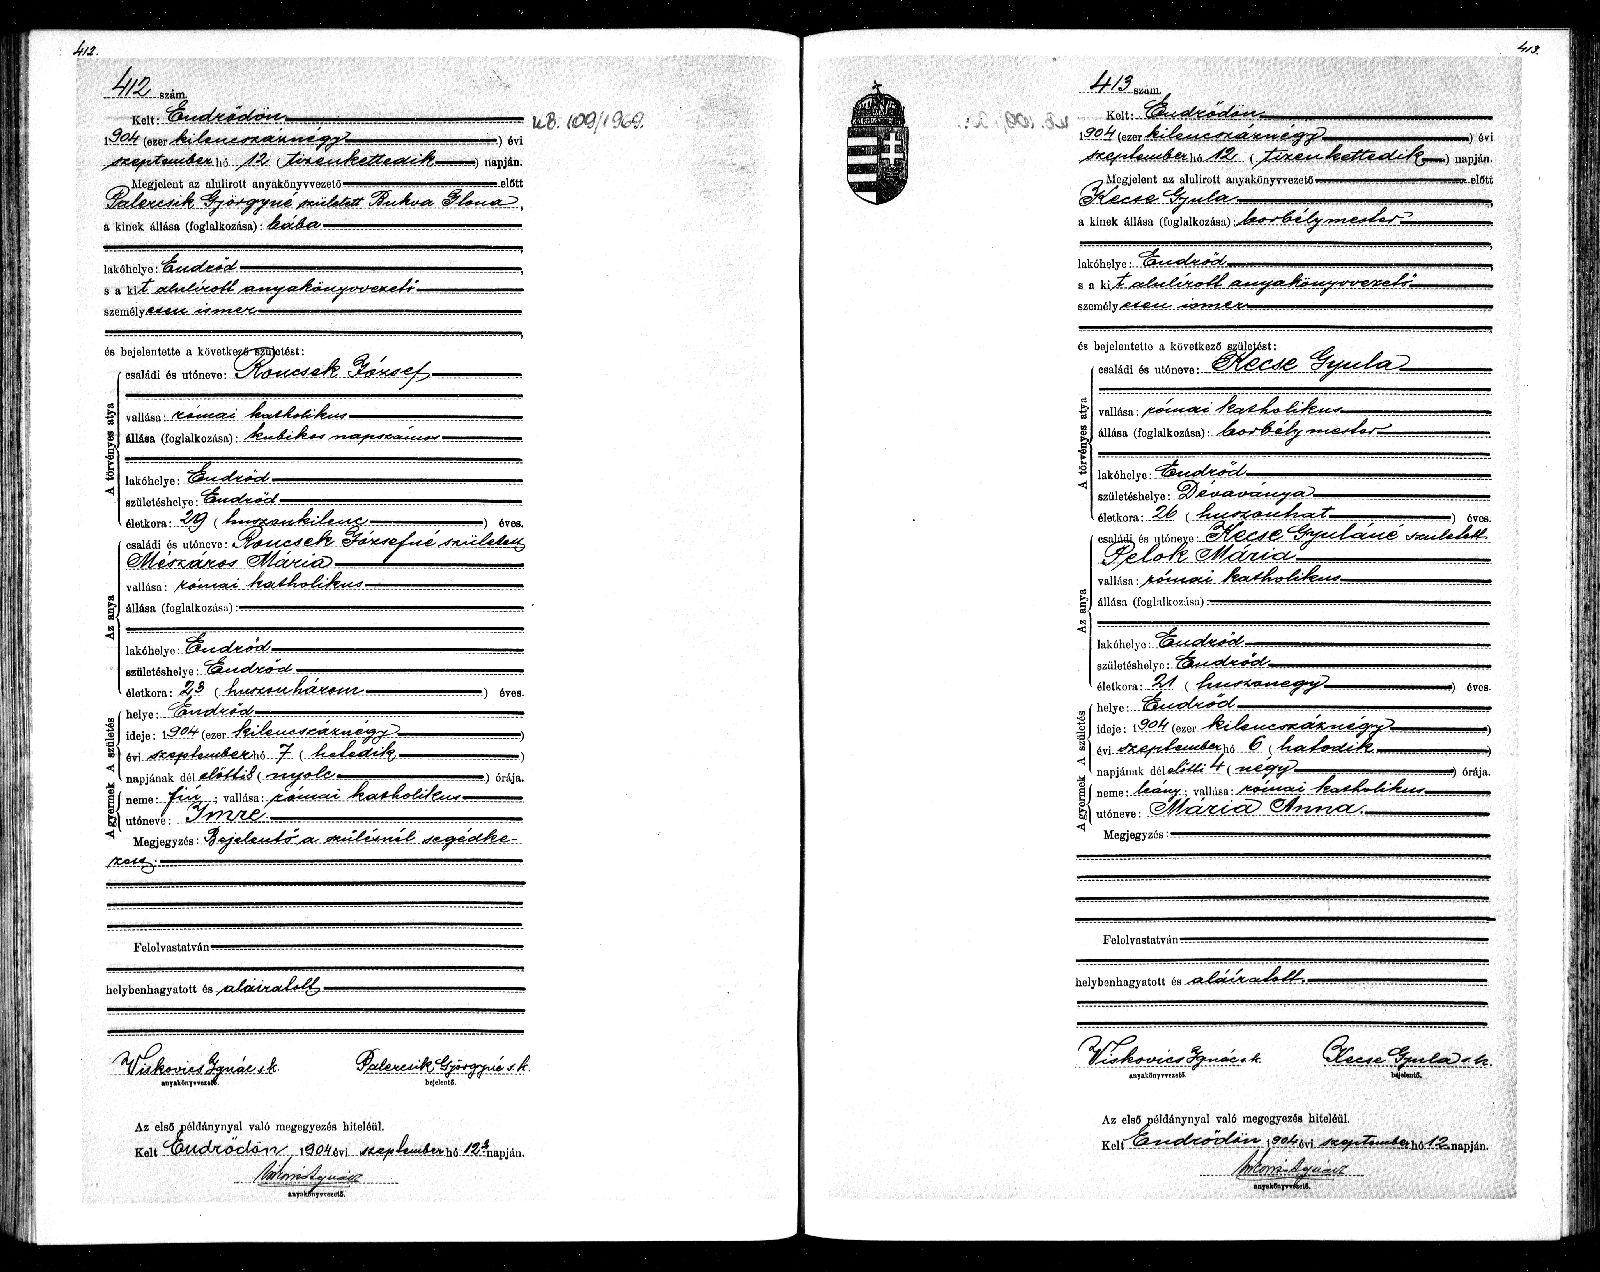 412.
412 szám.
Kelt: Endrődön
1904 (ezer kilencszáznégy) évi
szeptember hó 12 (tizenkettedik) napján.
Megjelent az alulirott anyakönyvvezető előtt
Palercsik Györgyné született Bukva Ilona,
a kinek állása (foglalkozása): bába
lakóhelye: Endrőd
s a kit alulírott anyakönyvvezető
személyesen ismer
és bejelentette a következő születést:
A törvényes atya
családi és utóneve: Roncsek József
vallása: római katholikus
állása (foglalkozása): kubikos napszámos
lakóhelye: Endrőd
születéshelye: Endrőd
életkora: 29 (huszonkilenc) éves.
Az anya
családi és utóneve: Roncsek Józsefné született
Mészáros Mária
vallása: római katholikus
állása (foglalkozása):
lakóhelye: Endrőd
születéshelye: Endrőd
életkora: 23 (huszonhárom) éves.
A születés
helye: Endrőd
ideje: 1904 (ezer kilencszáznégy)
évi szeptember hó 7 (hetedik)
napjának dél előtti 8 (nyolc) órája.
A gyermek
neme: fiú; vallása: római katholikus
utóneve: Imre
Megjegyzés: Bejelentő a szülésnél segédke-
zett.
Felolvastatván
helybenhagyatott és aláíratott
Viskovics Ignác s. k. Palercsik Györgyné s. k.
anyakönyvvezető. bejelentő.
Az első példánynyal való megegyezés hiteléül.
Kelt Endrődön 1904 évi szeptember hó 12 napján.
anyakönyvvezető.
u.B. 109/1969.
413.
413 szám.
Kelt: Endrődön
1904 (ezer kilencszáznégy) évi
szeptember hó 12 (tizenkettedik) napján.
Megjelent az alulirott anyakönyvvezető előtt
Kecse Gyula
a kinek állása (foglalkozása): borbélymester
lakóhelye: Endrőd
s a kit alulírott anyakönyvvezető
személyesen ismer
és bejelentette a következő születést:
A törvényes atya
családi és utóneve: Kecse Gyula
vallása: római katholikus
állása (foglalkozása): borbélymester
lakóhelye: Endrőd
születéshelye: Dévaványa
életkora: 26 (huszonhat) éves.
Az anya
családi és utóneve Kecse Gyuláné született
Pelok Mária
vallása: római katholikus
állása (foglalkozása):
lakóhelye: Endrőd
születéshelye: Endrőd
életkora: 21 (huszonegy) éves.
A születés
helye: Endrőd
ideje: 1904 (ezer kilencszáznégy)
évi szeptember hó 6 (hatodik)
napjának dél előtti 4 (négy) órája.
A gyermek
neme: leány; vallása: római katholikus
utóneve: Mária Anna.
Megjegyzés:
Felolvastatván
helybenhagyatott és aláíratott.
Viskovics Ignác s. k. Kecse Gyula s. k.
anyakönyvvezető. bejelentő.
Az első példánynyal való megegyezés hiteléül.
Kelt Endrődön 1904 évi szeptember hó 12 napján.
anyakönyvvezető.